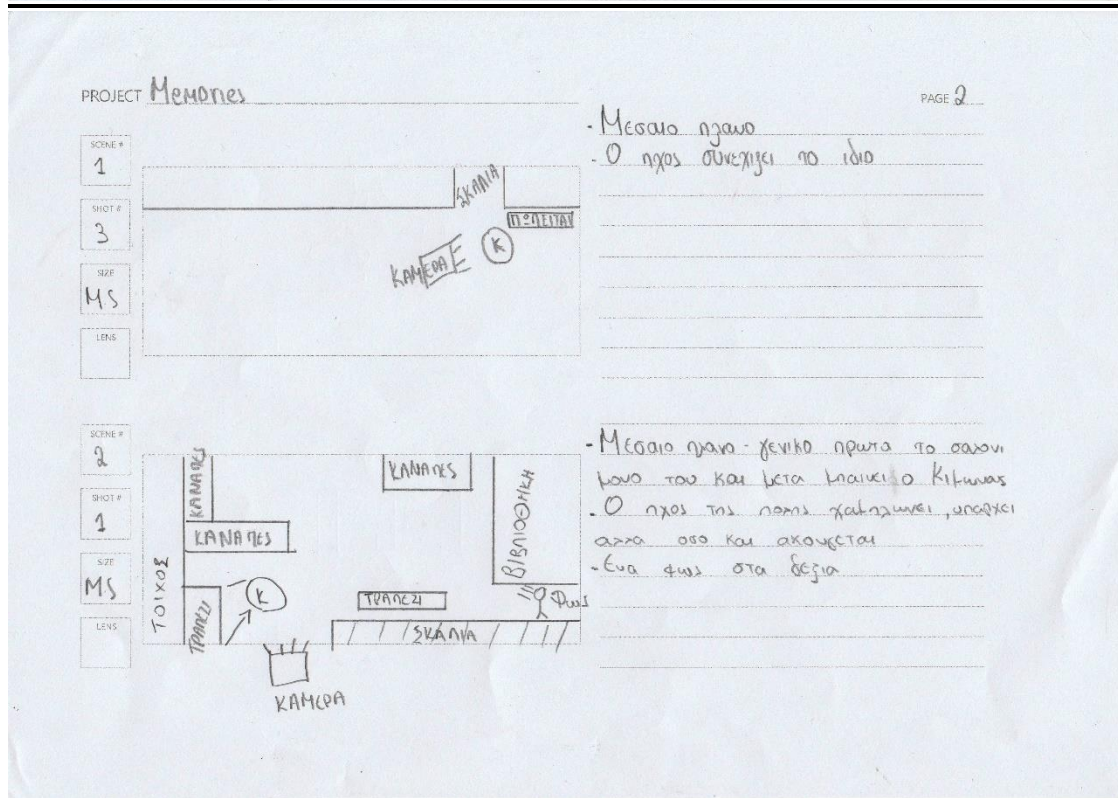 PROJECT Memories
PAGE 2
SCENE #
1
SHOT #
3
SIZE
MS
LENS
ΣΚΑΛΙΑ
ΠΩΛΕΙΤΑΙ
Κ
ΚΑΜΕΡΑ
- Μεσαιο πλανο
- Ο ηχος συνεχιζει το ιδιο
SCENE #
2
SHOT #
1
SIZE
MS
LENS
ΚΑΝΑΠΕΣ
ΚΑΝΑΠΕΣ
ΚΑΝΑΠΕΣ
ΒΙΒΛΙΟΘΗΚΗ
ΤΟΙΧΟΣ
ΤΡΑΠΕΖΙ
Κ
ΤΡΑΠΕΖΙ
Φως
ΣΚΑΛΙΑ
ΚΑΜΕΡΑ
- Μεσαιο πλανο - γενικο πρωτα το σαλονι
μονο του και μετα μπαινει ο Κιμωνας
- Ο ηχος της πολης χαμηλωνει, υπαρχει
αλλα οσο και ακουγεται
- Ενα φως στα δεξια